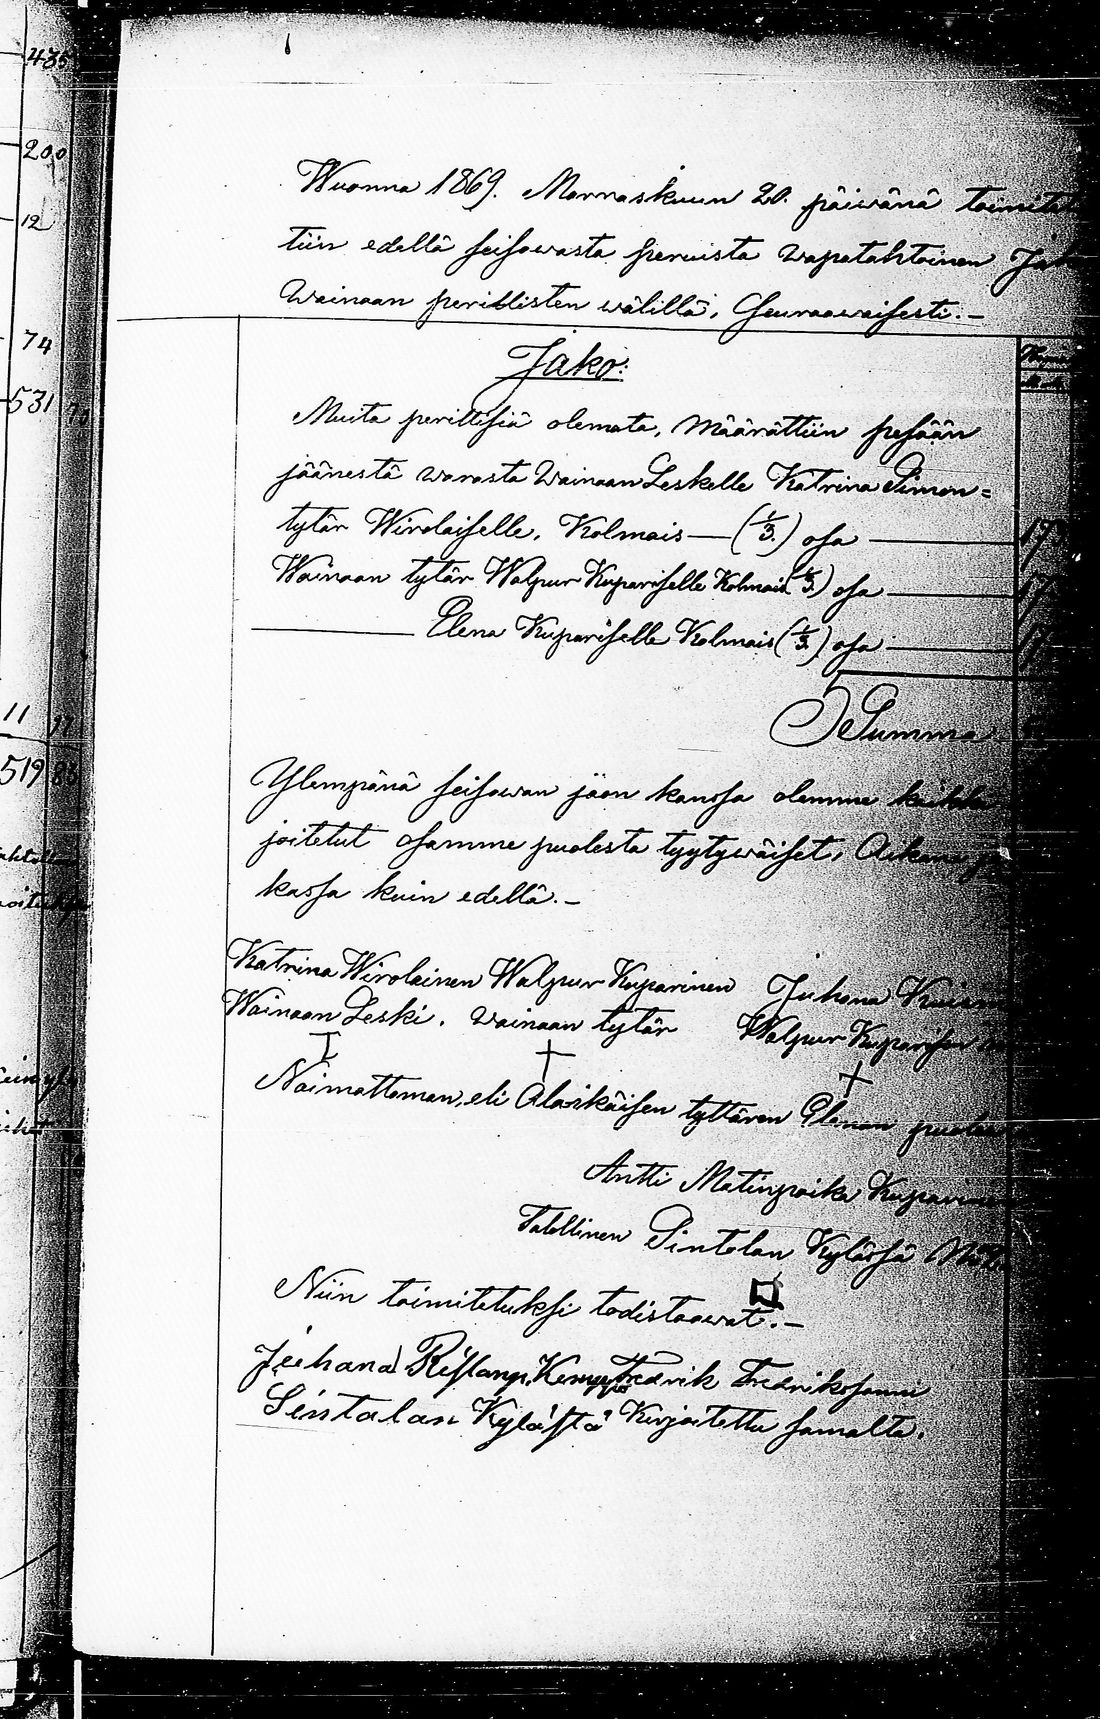 435
200
12
74
531
11 11
519 83
Wuonna 1869. Marraskuun 20. päiwänä toimitet
tiin edellä seisowasta pesuista wapatahtoinen Jako
Wainaan perillisten wälillä, Seuraawaisesti.-
Jako:
Muita perillisiä olemata, Määrättiin pesään
jäänestä warasta Wainaan Leskelle Katrina Simon=
tytär Wirolaiselle, Kolmais — (1/3.) osa —
Wainaan tytär Walpur Kupariselle Kolmais (1/3.) osa —
— Elena Kupariselle Kolmais (1/3.) osa —
Summa
Ylempänä seisowan jäon kanssa olemme kaikki
joitetut osamme puolesta tyytywäiset, Aikana ja
kassa kuin edellä.-
Katrina Wirolainen Walpur Kuparinen Juhana
Wainaan Leski. wainaan tytär Walpur Kuparisen
Naimattoman, eli Alaikäisen tyttären Elenan puolesta
Antti Matinpoika Kuparinen
Talollinen Sintolan Kylässä
Niin toimitetuksi todistaawat.-
Juhana Ristanp. Kemppi Fredrik Fredrikssonni
Sintalan Kylästä Kirjoitettu samalta.